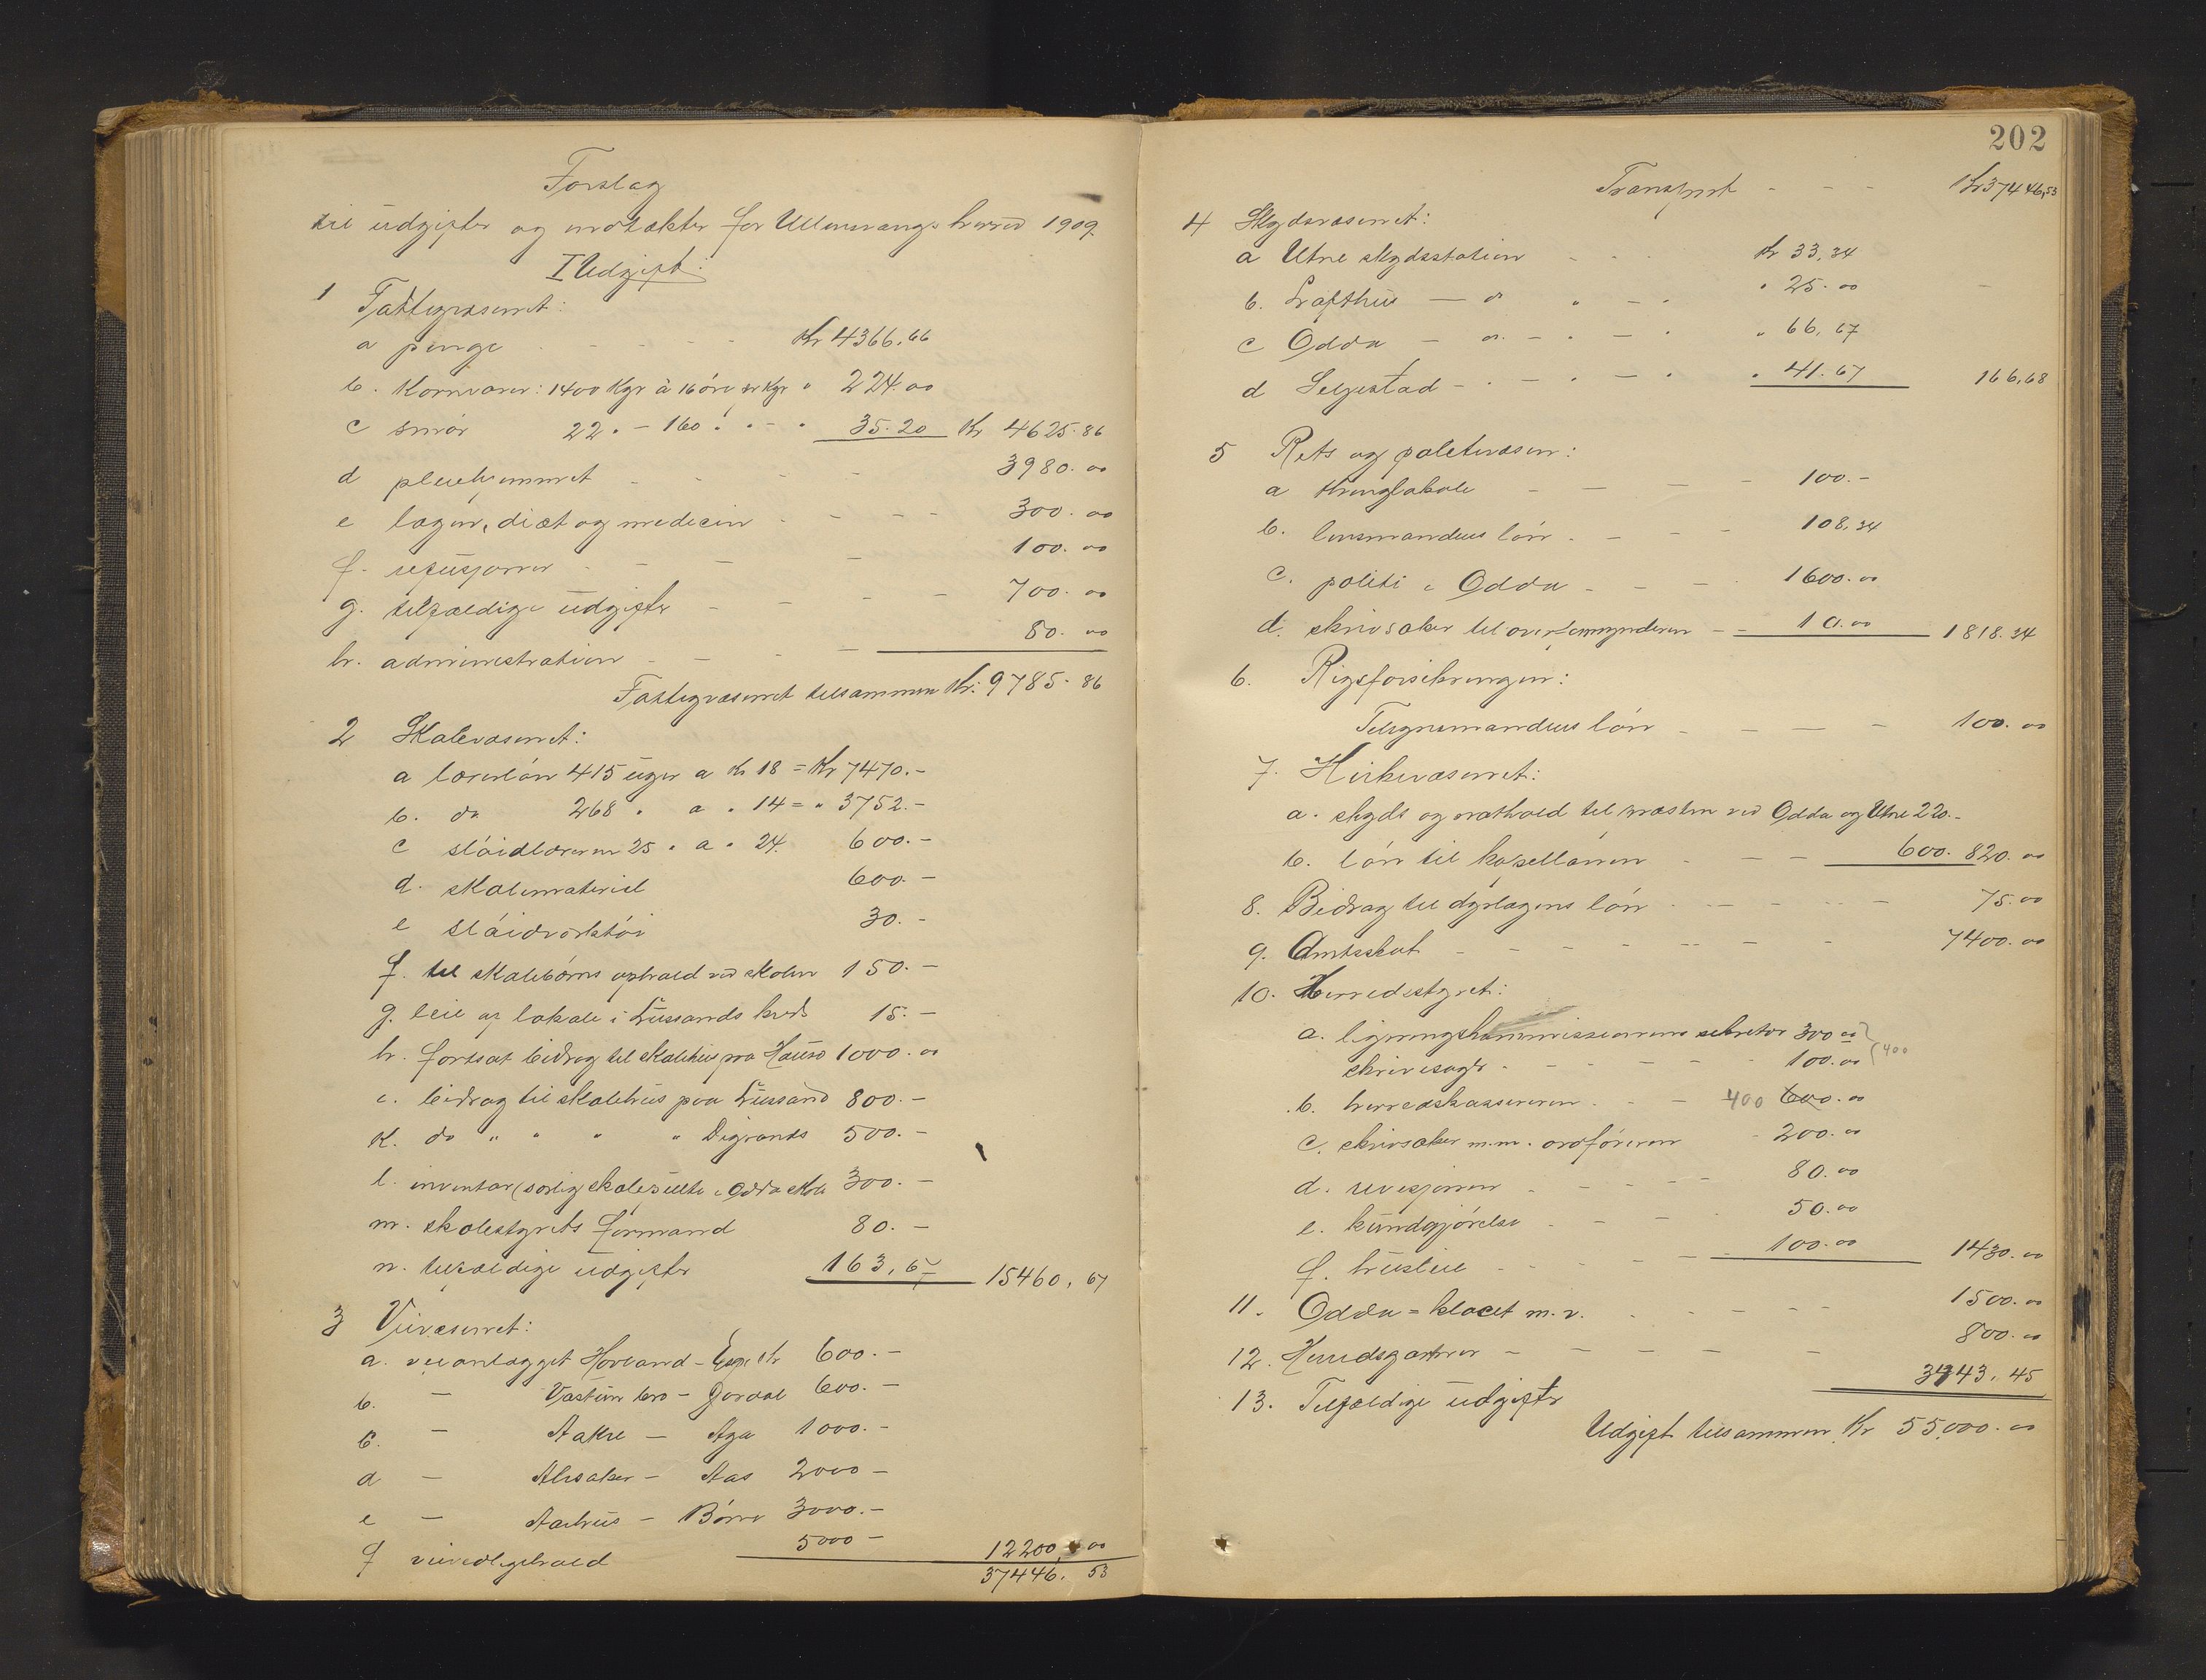 Forslag
til udgifter og indtækter for Ullensvangs herred 1909.
I Udgift:
1 Fattigvæsenet:
a penge - - - - - Kr 4366.66
b. Kornvarer: 1400 Kgr à 16 öre pr Kgr " 224.00
c smör 22 " - 160 " " - " 35.20 Kr 4625.86
d pleiehjemmet - - - - 3980.00
e lægen, diæt og medicin - - - - 300.00
f. refusjoner - - - - 100.00
g. tilfældige udgifter - - - - 700.00
h. administration - - - - 80.00
Fattigvæsenet tilsammen Kr. 9785.86
2 Skolevæsenet:
a lærerlön 415 uger a Kr 18 = Kr 7470.-
b. do 268 " a " 14 = " 3752.-
c slöidlæreren 25 " a " 24. 600.-
d. skolemateriel 600.-
e slöidverktöi 30.-
f. til skolebörns ophold ved skolen 150.-
g. leie af lokale i Lussands kreds 15.-
h. fortsat bidrag til skolehus paa Hauso 1000.00
i. bidrag til skolehus paa Lussand 800.-
k. do " " " " Digrands 500.-
l. inventar (særlig skolepulte i Odda skole 300.-
m. skolestyrets formand 80.-
n. tilfældige udgifter 163,67 15460,67
3 Veivæsenet:
a. veianlægget Hovland - Espe Kr 600.-
b. - Vastun bro - Jordal 600.-
c. - Aakre - Aga 1000.-
d - Alsaker - Aas 2000-
e - Aarhus - Börve 3000.-
f veivedligehold 5000- 12200,00
37446.53
202
Transport - - - Kr 37446,53
4 Skydsvæsenet:
a Utne skydsstation - - - Kr 33,34
b. Lofthus - do " - " " 25.00
c Odda - do. - " - " " 66,67
d Seljestad - " - " - " " 41.67 166,68
5 Rets og politivæsen:
a thinglokale - - - - 100.-
b. lensmandens lön - - - - 108,34
c. politi i Odda - - - 1600.00
d. skrivsaker til overformynderen - - 10.00 1818.34
6. Rigsforsikringen:
Tilsynsmandens lön - - - - 100.00
7. Kirkevæsenet:
a. skyds og nathold til præsten ved Odda og Utne 220.-
b. lön til kapellanen - - - 600. 820.00
8. Bidrag til dyrlægens lön - - - - - 75.00
9. Amtsskat - - - - - - - 7400.00
10. Herredsstyret:
a. ligningskommissionens sekretær 300.00
skrivesager - - - - - 100.00 400
b. herredskassereren - - - 400 600.00
c. skrivsaker m.m. ordföreren - 200.00
d. revisjonen - - - - - 80.00
e. kundgjörelse - - - - 50.00
f. husleie - - - - 100.00 1430.00
11. Odda = klocet m.v. - - - - - 1500.00
12. Herredsgartner - - - - - 800.00
13. Tilfældige udgifter 3443,45
Udgift tilsammen Kr 55,000.00